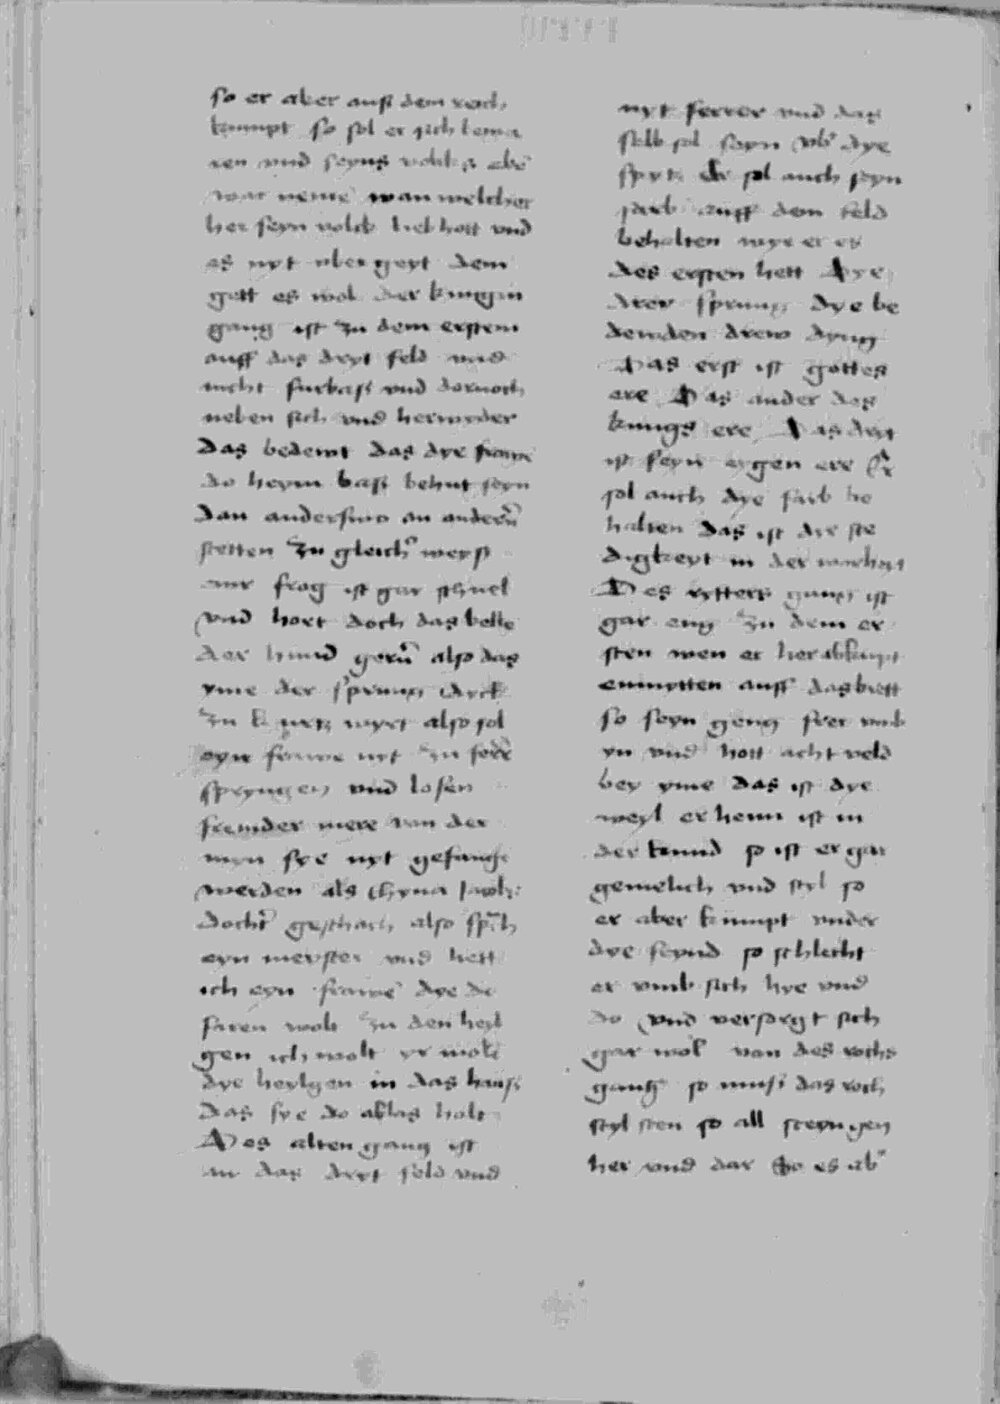 so er aber auß dem reich
kumpt so sol er sich bewa
ren vnd seyns volks ebē
war neme wan welcher
her seyn volck lieb hott vnd
es nyt vber geyt dem
gett es wol der kungin
gang ist zu dem ersten
auff das dryt feld vnd
nicht furbaß vnd dornoch
neben sich vnd herwyder
Das bedewt das dye frawe
do heym baß behut seyn
Dan anderswo an anderñ
stetten Zu gleichʳ weyß
frog ist gar schnel
vnd hort doch das belle
der hund gerñ also das
yme der sprung dyck
zu kurtz wyrt also sol
eyn frawe nyt zu ferr
spryngen vnd losen
fremder mere van der
sye nyt gefange
werden als thyna Jacobs
dochtʳ geschach also sprich
eyn meyster vnd hett
ich eyn frawe dye do
faren wolt zu den heyl
gen ich wolt yr
dye heylgen in das hauß
Das sye do ablas holt
Des alten gang ist
an das dryt feld vnd
nyt ferrer vnd das
selb sol seyn vbʳ dye
spytz Er sol auch seyn
farb auff dem feld
behalten wye er es
des ersten hett Dye
drey sprung dye be
dewden drew dyng
Das erst ist gottes
ere Das ander des
kungs ere Das dryt
ist seyn eygen ere Er
sol auch dye farb be
halten das ist dye ste
digkeyt in der worheyt
Des rytters gang ist
gar eng zu dem er
sten wen er her abkumpt
enmytten auff das brett
so seyn geng fier vmb
yn vnd hott acht veld
bey yme das ist dye
weyl er heim ist in
der so ist er gar
gemelich vnd styl so
er aber kumpt vnder
dye feynd so schlecht
er vmb sich hye vnd
do vnd versorgt sich
gar wol van des rochs
gang so muß das roch
styl sten so all steyn gen
her vnd dar So es abʳ